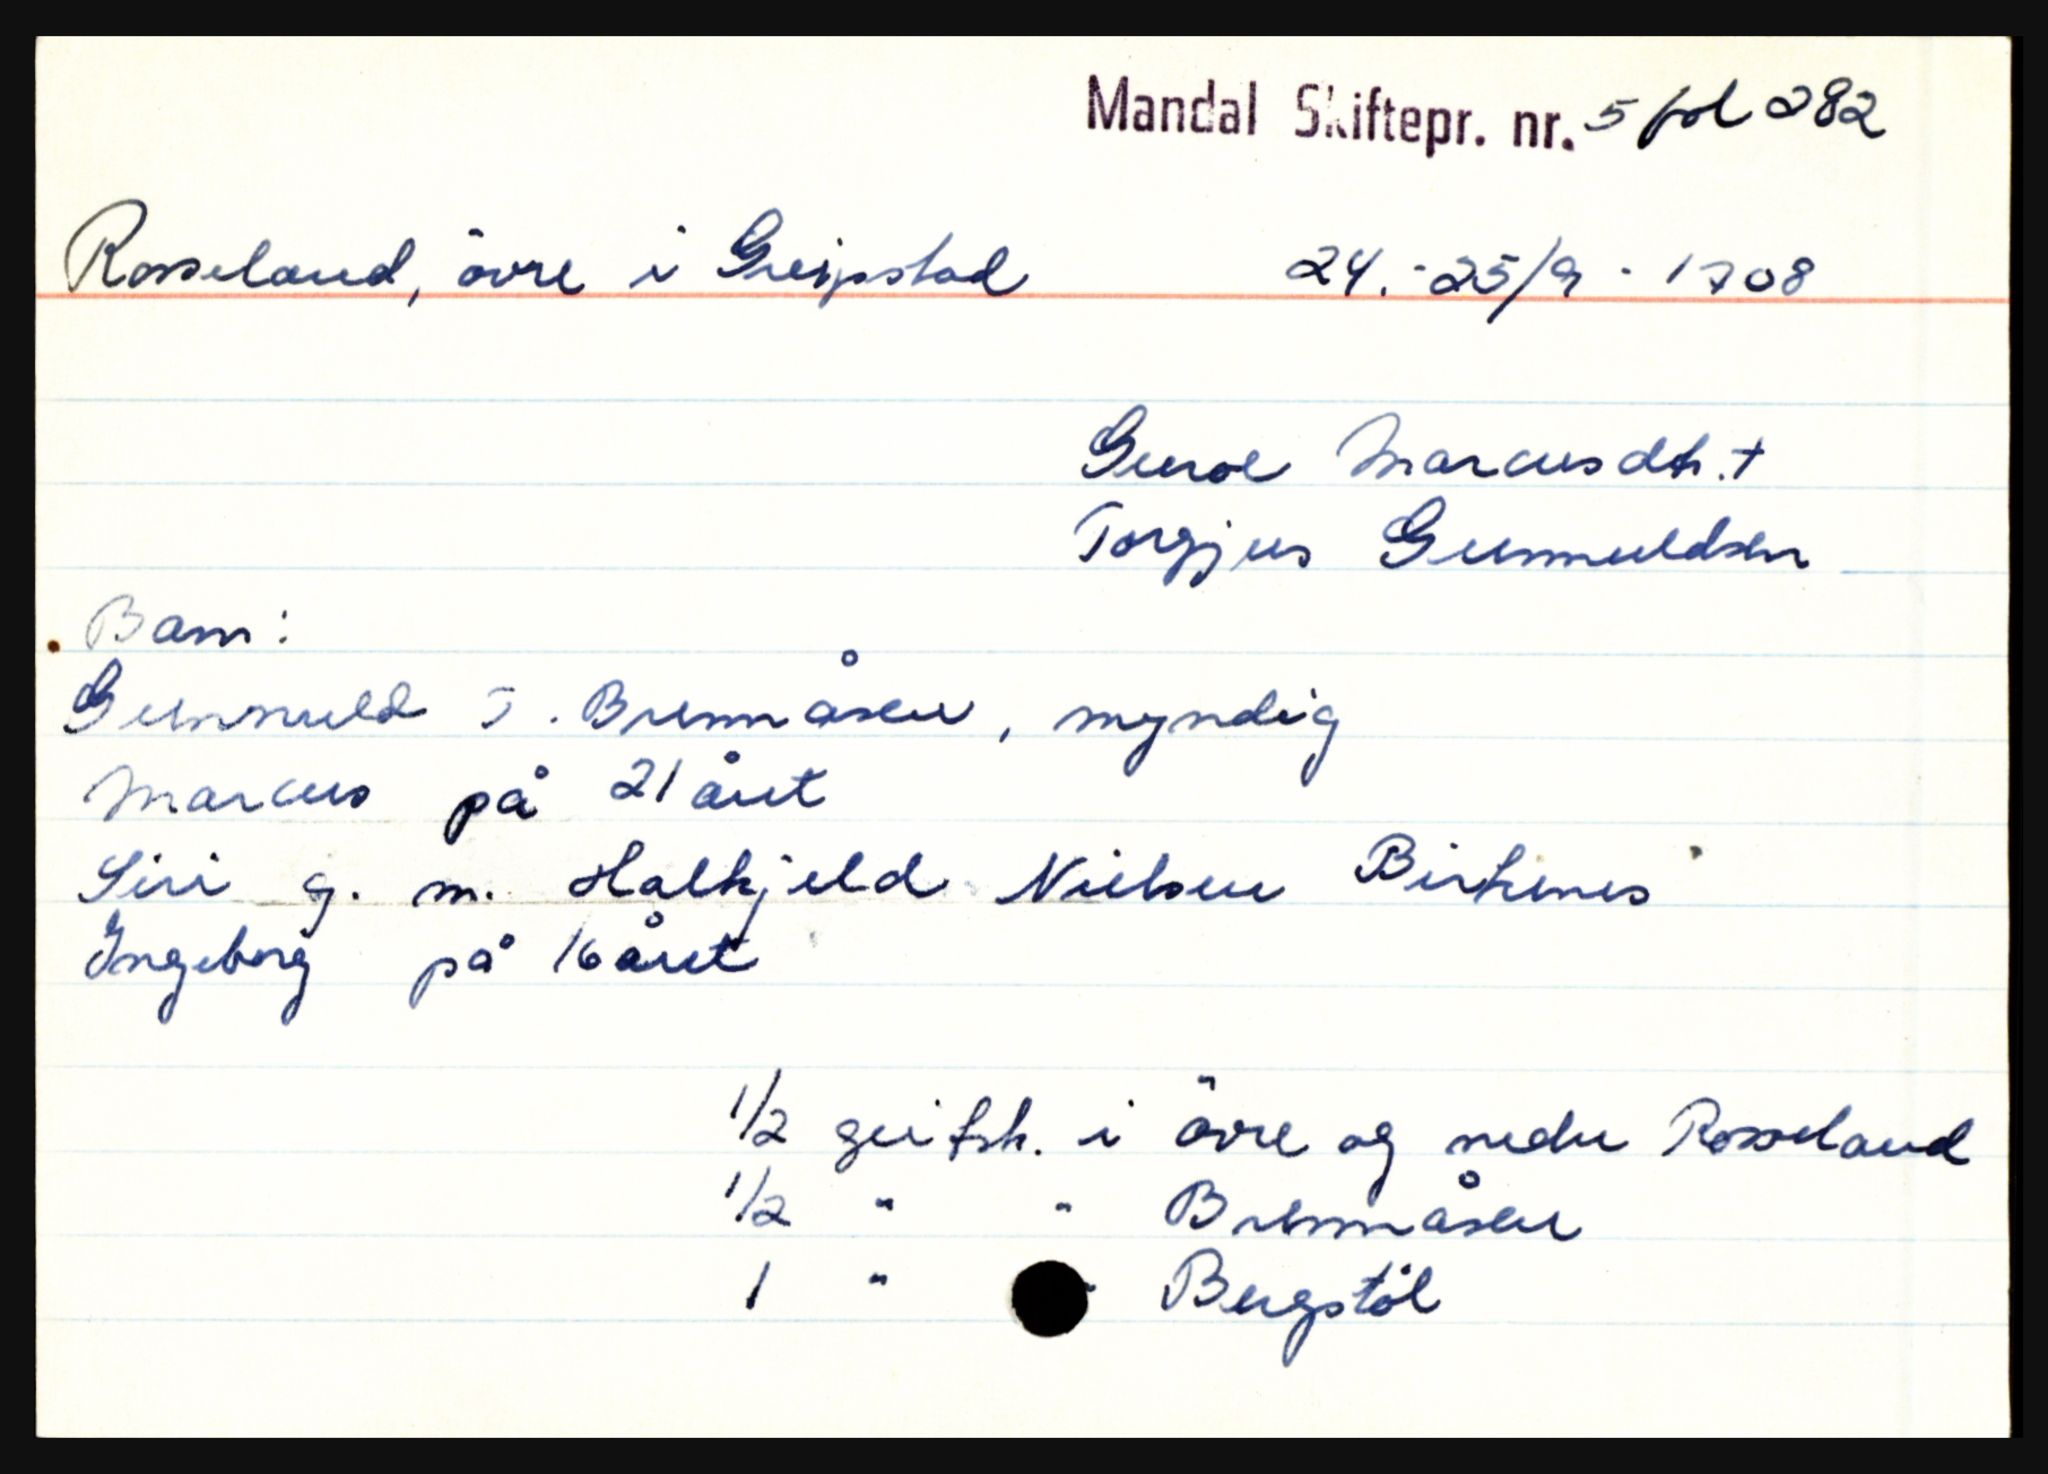 Mandal Skiftepr. nr. 5 fol 282
Rosseland, övre i Greipstad 24.-25/9 - 1708
Guroe Marcusdtr. †
Torgjus Gunnuldsen
Barn:
Gunnuld T. Brennåsen, myndig
Marcus på 21 året
Siri g. m. Halkjeld Nielsen Birkenes
Ingeborg på 16 året
1/2 geitsk. i övre og nedre Rosseland
1/2 " " Brennåsen
1 " " Bergstöl